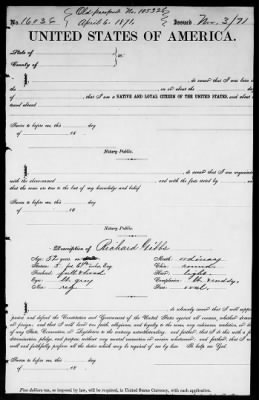 Old passport No. 10532
No. 16036 April 6. 1871. Issued Nov. 3/71
UNITED STATES OF AMERICA.
State of
County of
I, do swear that I was born
in on or about the day
of , that I am a NATIVE AND LOYAL CITIZEN OF THE UNITED STATES, and about to
travel abroad
Sworn to before me this day
of 18
Notary Public.
I, do swear that I am acquainted
with the above-named and with the facts stated by
that the same are true to the best of my knowledge and belief
Sworn to before me this day
of 18
Notary Public.
Description of Richard Gibbs
Age: 52 years Mouth: ordinary
Stature: 5 feet inches, Eng. Chin: round
Forehead: Hair: light
Eyes: gray Complexion: ruddy
Nose: reg Face: oval
I, do solemnly swear that I will support,
protect, and defend the Constitution and Government of the United States against all enemies, whether domestic
or foreign; and that I will bear true faith, allegiance, and loyalty to the same, any ordinance, resolution, or law
of any State Convention or Legislature to the contrary notwithstanding; and further, that I do this with a full
determination, pledge, and purpose, without any mental reservation or evasion whatsoever; and further, that I will
well and faithfully perform all the duties which may be required of me by law. So help me God.
Sworn to before me this day
of 18
Notary Public.
Five dollars tax, as imposed by law, will be required, in United States Currency, with each application.